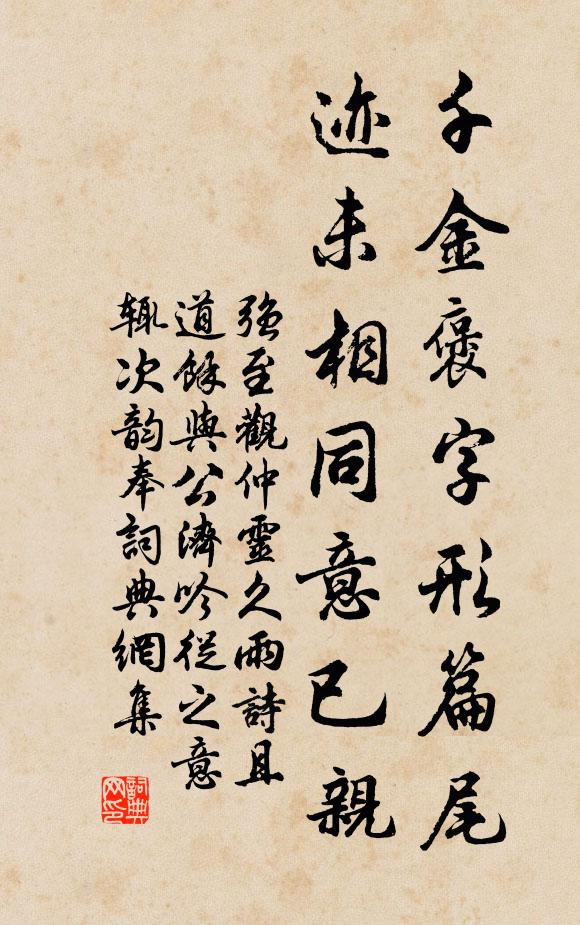 千金褒字形篇尾
迹未相同意已親
強至觀仲靈久雨詩且
道餘與公濟吟從之意
輒次韵奉詞典網集
詞典
网印